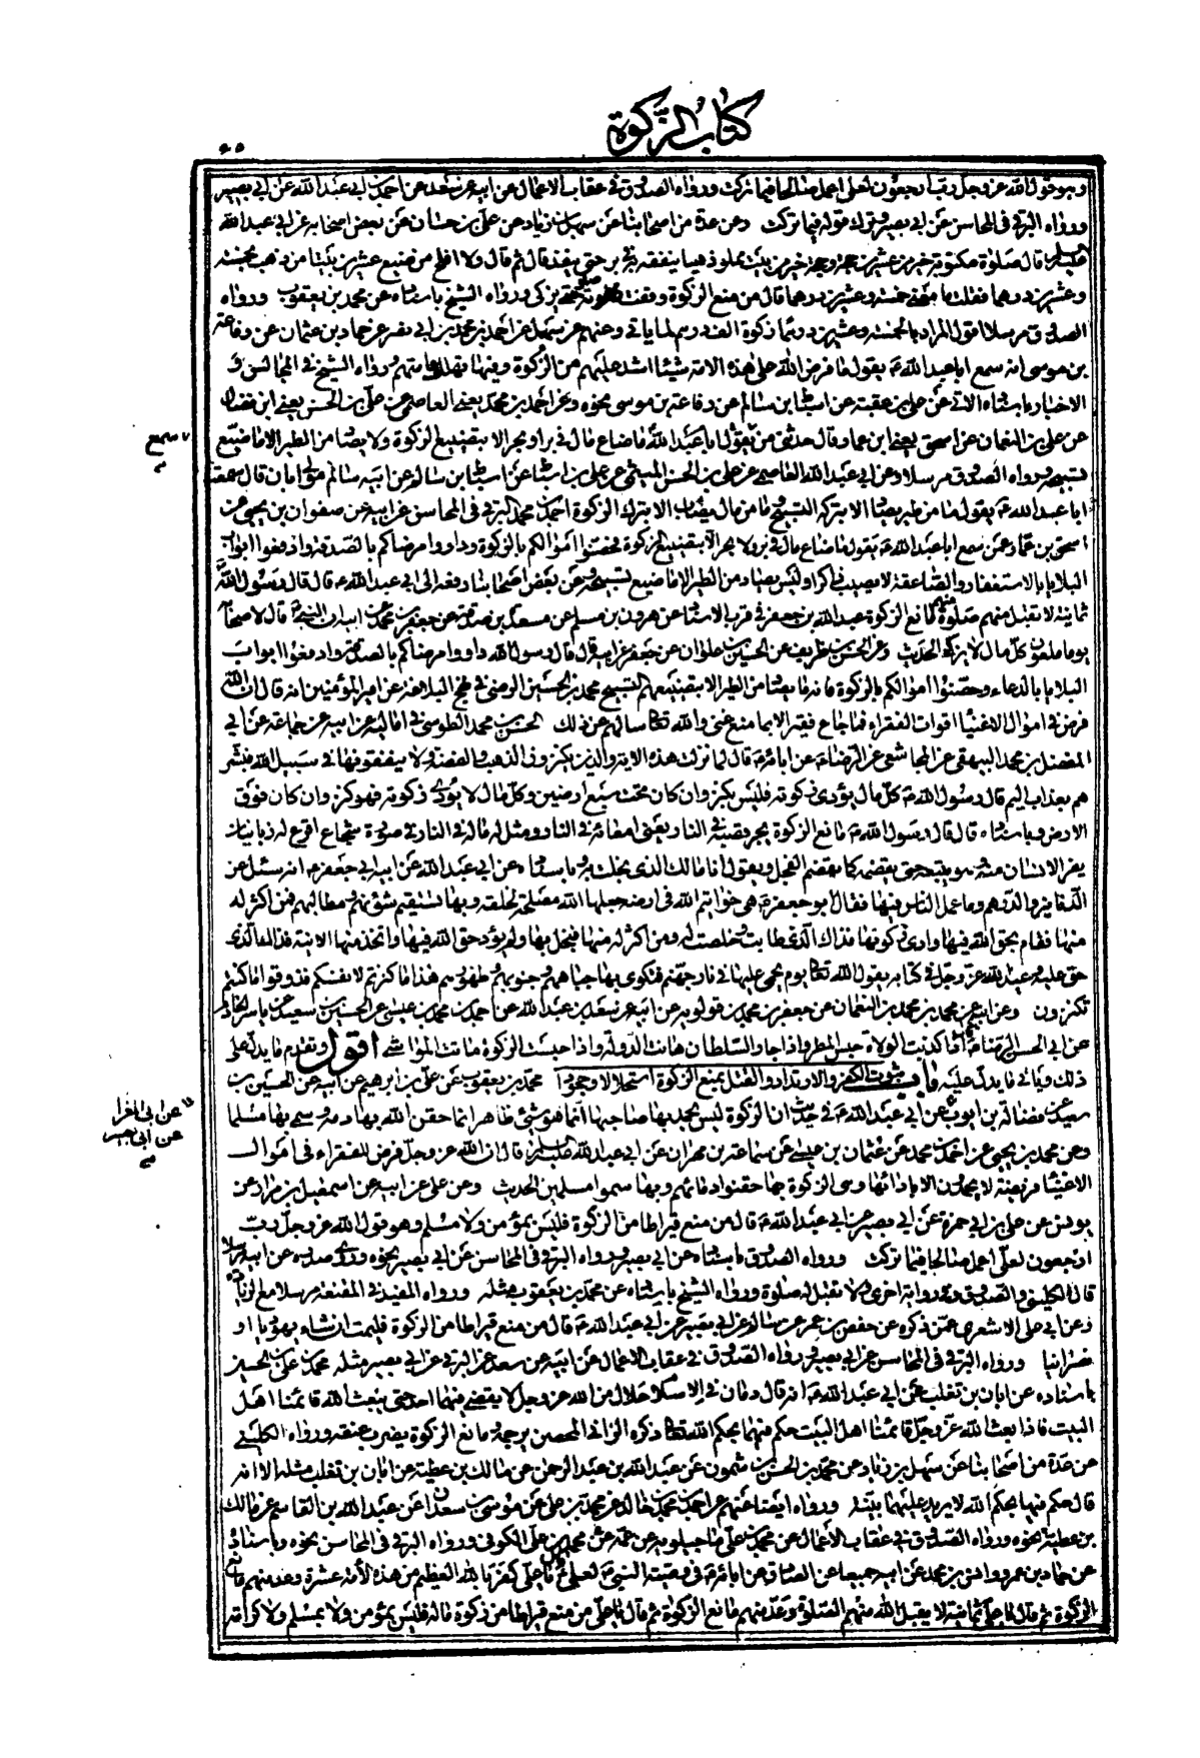 كتاب الزكوة
وهو قول الله عز وجل رب ارجعون لعلى اعمل صالحا فيما تركت ورواه الصدوق فى عقاب الاعمال عن ابيه عن سعد عن احمد بن ابى عبد الله عن ابى بصير
ورواه البرقى فى المحاسن عن ابى بصير وترك قوله فيما تركت وعن عدة من اصحابنا عن سهل بن زياد عن على بن حسان عن بعض اصحابه عن ابى عبد الله
قال صلوة مكتوبة خير من عشرين حجة وحجة خير من بيت مملو ذهبا ينفقه فى بر حتى ينفد قال ثم قال ولا افلح من ضيع عشرين بيتا من ذهب بخمسة
وعشرين درهما فقلت ما معنى خمسة وعشرين درهما قال من منع الزكوة وقفت صلوته حتى يزكى ورواه الشيخ باسناده عن محمد بن يعقوب ورواه
الصدوق مرسلا اقول المراد بالخمسة وعشرين درهما زكوة الف درهم لما ياتى وعنهم عن سهل عن احمد بن محمد بن ابى نصر عن حماد بن عثمان عن رفاعة
بن موسى انه سمع ابا عبد الله ع يقول ما فرض الله على هذه الامة شيئا اشد عليهم من الزكوة وفيها تهلك عامتهم ورواه الشيخ فى المجالس و
الاخبار باسناده الاتى عن على بن عقبة عن اسباط بن سالم عن رفاعة بن موسى نحوه وعن احمد بن محمد يعنى العاصمى عن على بن الحسن يعنى ابن فضال
عن على بن النعمان عن اسحق يعنى ابن عمار قال حدثنى من يقول ابا عبد الله ماضاع مال فى بر او بحر الا بتضييع الزكوة ولا يصاد من الطير الا ما ضيع
سمع
تسبيحه ورواه الصدوق مرسلا وعن ابى عبد الله العاصمى عن على بن الحسن الميثمى عن على بن اسباط عن اسباط بن سالم عن ابيه سالم مولى ابان قال سمعت
ابا عبد الله ع يقول ما من طير يصاد الا بتركه التسبيح وما من مال يصاب الا بترك الزكوة احمد بن محمد البرقى فى المحاسن عن ابيه عن صفوان بن يحيى عن
اسحق بن عمار وعمن سمع ابا عبد الله ع يقول ما ضاع مال فى بر ولا بحر الا بتضييع الزكوة فحصنوا اموالكم بالزكوة وداووا مرضاكم بالصدقة وادفعوا ابواب
البلايا بالاستغفار والصاعقة لا تصيب ذاكرا وليس يصاد من الطير الا ما ضيع تسبيحه وعن بعض اصحابنا رفعه الى ابى عبد الله ع قال قال رسول الله
ثمانية لا تقبل منهم صلوة منهم مانع الزكوة عبد الله بن جعفر فى قرب الاسناد عن هرون بن مسلم عن مسعدة بن صدقة عن جعفر بن محمد عن ابيه ان النبى ص قال لاصحابه
يوما ملعون كل مال لا يزكى الحديث وعن الحسن بن ظريف عن الحسين بن علوان عن جعفر عن ابيه قال قال رسول الله داووا مرضاكم بالصدقة وادفعوا ابواب
البلايا بالدعاء وحصنوا اموالكم بالزكوة فانه ما يصاد من الطير الا بتضييعهم التسبيح محمد بن الحسين الرضى فى نهج البلاغة عن امير المؤمنين انه قال ان الله
فرض فى اموال الاغنياء اقوات الفقراء فما جاع فقير الا بما منع غنى والله تعالى سائلهم عن ذلك الحسن بن محمد الطوسى فى اماليه عن ابيه عن جماعة عن ابى
المفضل بن محمد البيهقى عن المجاشعى عن الرضا ع عن ابائه ع قال لما نزلت هذه الاية والذين يكنزون الذهب والفضة ولا ينفقونها فى سبيل الله فبشر
هم بعذاب اليم قال رسول الله ص كل مال يؤدى زكوته فليس بكنز وان كان تحت سبع ارضين وكل مال لا يؤدى زكوته فهو كنز وان كان فوق
الارض وباسناده قال قال رسول الله ص مانع الزكوة يجر قصبه فى النار يعنى امعائه فى النار ومثل له ماله فى النار فى صورة شجاع اقرع له زبانيتان
يفر الانسان منه وهو يتبعه حتى يقضمه كما يقضم الفجل ويقول انا مالك الذى بخلت به وباسناده عن ابى عبد الله عن ابيه ابى جعفر ع انه سئل عن
الدنانير والدراهم وما على الناس فيها فقال ابو جعفر ع هى خواتيم الله فى ارضه جعلها الله مصلحة لخلقه وبها تستقيم شؤنهم ومطالبهم فمن اكثر له
منها فقام بحق الله فيها وادى زكوتها فذاك الذى طابت وخلصت له ومن اكثر له منها فبخل بها ولم يؤد حق الله فيها واتخذ منها الانية فذلك الذى
حق عليه وعيد الله عز وجل فى كتابه يقول الله تعالى يوم يحمى عليها فى نار جهنم فتكوى بها جباههم وجنوبهم وظهورهم هذا ما كنزتم لانفسكم فذوقوا ما كنتم
تكنزون وعن ابيه عن محمد بن محمد بن النعمان عن جعفر بن محمد بن قولويه عن ابيه عن سعد بن عبد الله عن احمد بن محمد بن عيسى عن الحسين بن سعيد عن ياسر الخادم
عن ابى الحسن الرضا ع قال اذا كذبت الولاة حبس المطر واذا جار السلطان هانت الدولة واذا حبست الزكوة ماتت المواشى اقول وتقدم ما يدل على
ذلك وياتى ما يدل عليه باب ثبوت الكفر والارتداد والقتل بمنع الزكوة استحلالا وجحودا محمد بن يعقوب عن على بن ابرهيم عن ابيه عن الحسين بن
سعيد عن فضالة بن ايوب عن ابى عبد الله ع فى حديث ان الزكوة ليس يحمد بها صاحبها انما هو شئ ظاهر انما حقن الله بها دمه وسمى بها مسلما
عن ابى المغرا
عن ابى بصير
وعن محمد بن يحيى عن احمد بن محمد عن عثمان بن عيسى عن سماعة بن مهران عن ابى عبد الله قال ان الله عز وجل فرض للفقراء فى اموال
الاغنياء فريضة لا يحمدون الا بادائها وهى الزكوة بها حقنوا دمائهم وبها سموا مسلمين الحديث وعن على عن ابيه عن اسمعيل بن مرار عن
يونس عن على بن ابى حمزة عن ابى بصير عن ابى عبد الله ع قال من منع قيراطا من الزكوة فليس بمؤمن ولا مسلم وهو قول الله عز وجل رب
ارجعون لعلى اعمل صالحا فيما تركت ورواه الصدوق باسناده عن ابى بصير ورواه البرقى فى المحاسن عن ابى بصير نحوه
قال الكلينى والصدوق وفى رواية اخرى لا تقبل له صلوة ورواه الشيخ باسناده عن محمد بن يعقوب مثله ورواه المفيد فى المقنعة مرسلا مع الزيادة
وعن ابى على الاشعرى عمن ذكره عن حفص بن عمر عن سالم عن ابى بصير عن ابى عبد الله ع قال من منع قيراطا من الزكوة فليمت ان شاء يهوديا او
نصرانيا ورواه البرقى فى المحاسن عن ابى بصير ورواه الصدوق فى عقاب الاعمال عن ابيه عن سعد عن البرقى عن ابى بصير مثله محمد بن على بن الحسين
باسناده عن ابان بن تغلب عن ابى عبد الله ع انه قال دمان فى الاسلام حلال من الله عز وجل لا يقضى فيهما احد حتى يبعث الله قائمنا اهل
البيت فاذا بعث الله عز وجل قائمنا اهل البيت حكم فيهما بحكم الله تعالى ذكره الزانى المحصن يرجمه ومانع الزكوة يضرب عنقه ورواه الكلينى
عن عدة من اصحابنا عن سهل بن زياد عن محمد بن الحسن بن شمون عن عبد الله بن عبد الرحمن عن مالك بن عطية عن ابان بن تغلب مثله الا انه
قال حكم فيهما بحكم الله لا يريد عليهما بينة ورواه ايضا عنهم عن احمد بن محمد بن خالد عن محمد بن على عن موسى بن سعدان عن عبد الله بن القاسم عن مالك
بن عطية نحوه ورواه الصدوق فى عقاب الاعمال عن محمد بن على ماجيلويه عن عمه عن محمد بن على الكوفى ورواه البرقى فى المحاسن نحوه وباسناده
عن حماد بن عمرو وانس بن محمد عن ابيه جميعا عن الصادق عن ابائه ع فى وصية النبى ص لعلى ع قال يا على كفر بالله العظيم من هذه الامة عشرة وعد منهم مانع
الزكوة ثم قال يا على ثمانية لا يقبل الله منهم الصلوة وعد منهم مانع الزكوة ثم قال يا على من منع قيراطا من زكوة ماله فليس بمؤمن ولا بمسلم ولا كرامة